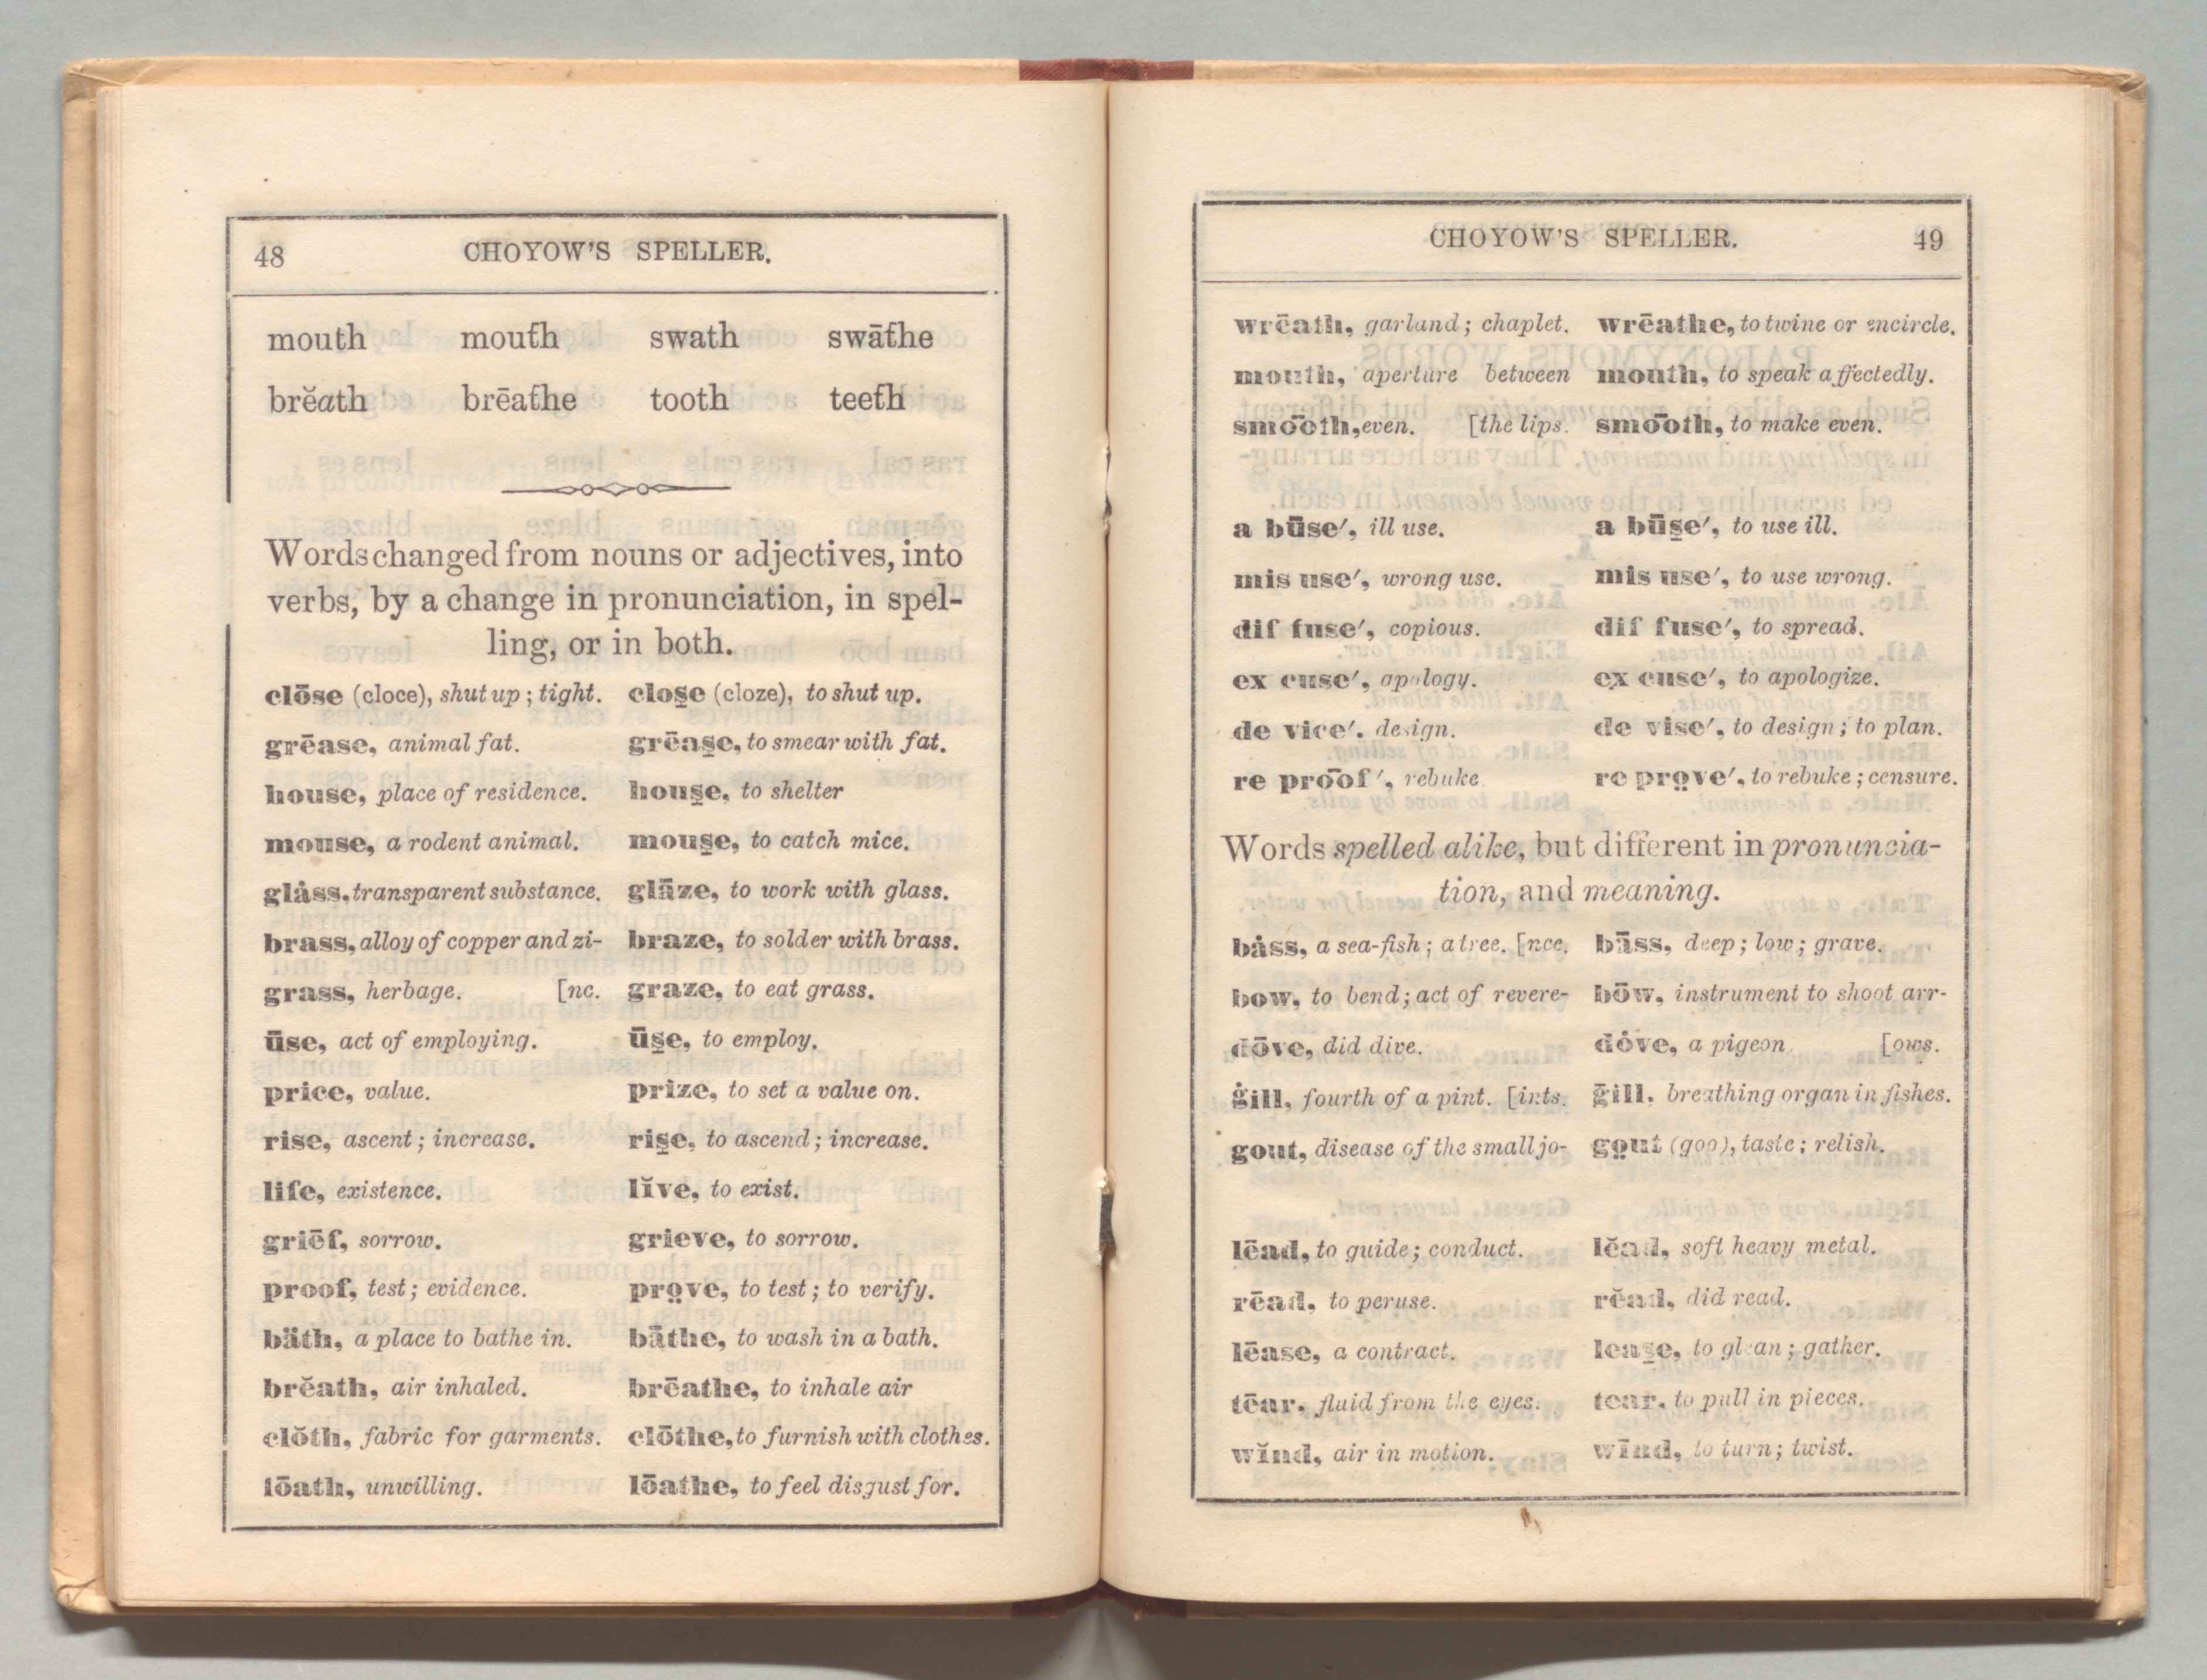 48 CHOYOW'S SPELLER.
mouth mouth swath swāthe
brĕath brēathe tooth teeth
Words changed from nouns or adjectives, into
verbs, by a change in pronunciation, in spel-
ling, or in both.
clōse (cloce), shut up; tight. clos̱e (cloze), to shut up.
grēase, animal fat. grēas̱e, to smear with fat.
house, place of residence. hous̱e, to shelter
mouse, a rodent animal. mous̱e, to catch mice.
glȧss, transparent substance. glāze, to work with glass.
brass, alloy of copper and zi- braze, to solder with brass.
grass, herbage. [nc. graze, to eat grass.
ūse, act of employing. ūs̱e, to employ.
price, value. prize, to set a value on.
rise, ascent; increase. ris̱e, to ascend; increase.
life, existence. lĭve, to exist.
griēf, sorrow. grieve, to sorrow.
proof, test; evidence. pro̤ve, to test; to verify.
bäth, a place to bathe in. bāthe, to wash in a bath.
brĕath, air inhaled. brēathe, to inhale air
clŏth, fabric for garments. clōthe, to furnish with clothes.
lōath, unwilling. lōathe, to feel disgust for.
CHOYOW'S SPELLER. 49
wrēath, garland; chaplet. wrēathe, to twine or encircle.
mouth, aperture between mouth, to speak affectedly.
smo͞oth, even. [the lips. smo͞oth, to make even.
a būse′, ill use. a būs̱e′, to use ill.
mis use′, wrong use. mis use′, to use wrong.
dif fuse′, copious. dif fuse′, to spread.
ex cuse′, apology. ex cuse′, to apologize.
de vice′. design. de vise′, to design; to plan.
re pro͞of′, rebuke re pro̤ve′, to rebuke; censure.
Words spelled alike, but different in pronuncia-
tion, and meaning.
bȧss, a sea-fish; a tree. [nce. bāss, deep; low; grave.
bow, to bend; act of revere- bōw, instrument to shoot arr-
dōve, did dive. dȯve, a pigeon. [ows.
ġill, fourth of a pint. [ints. ḡill, breathing organ in fishes.
gout, disease of the small jo- go̤ut (goo), taste; relish.
lēad, to guide; conduct. lĕad, soft heavy metal.
rēad, to peruse. rĕad, did read.
lēase, a contract. leas̱e, to glean; gather.
tēar, fluid from the eyes. tear, to pull in pieces.
wĭnd, air in motion. wīnd, to turn; twist.